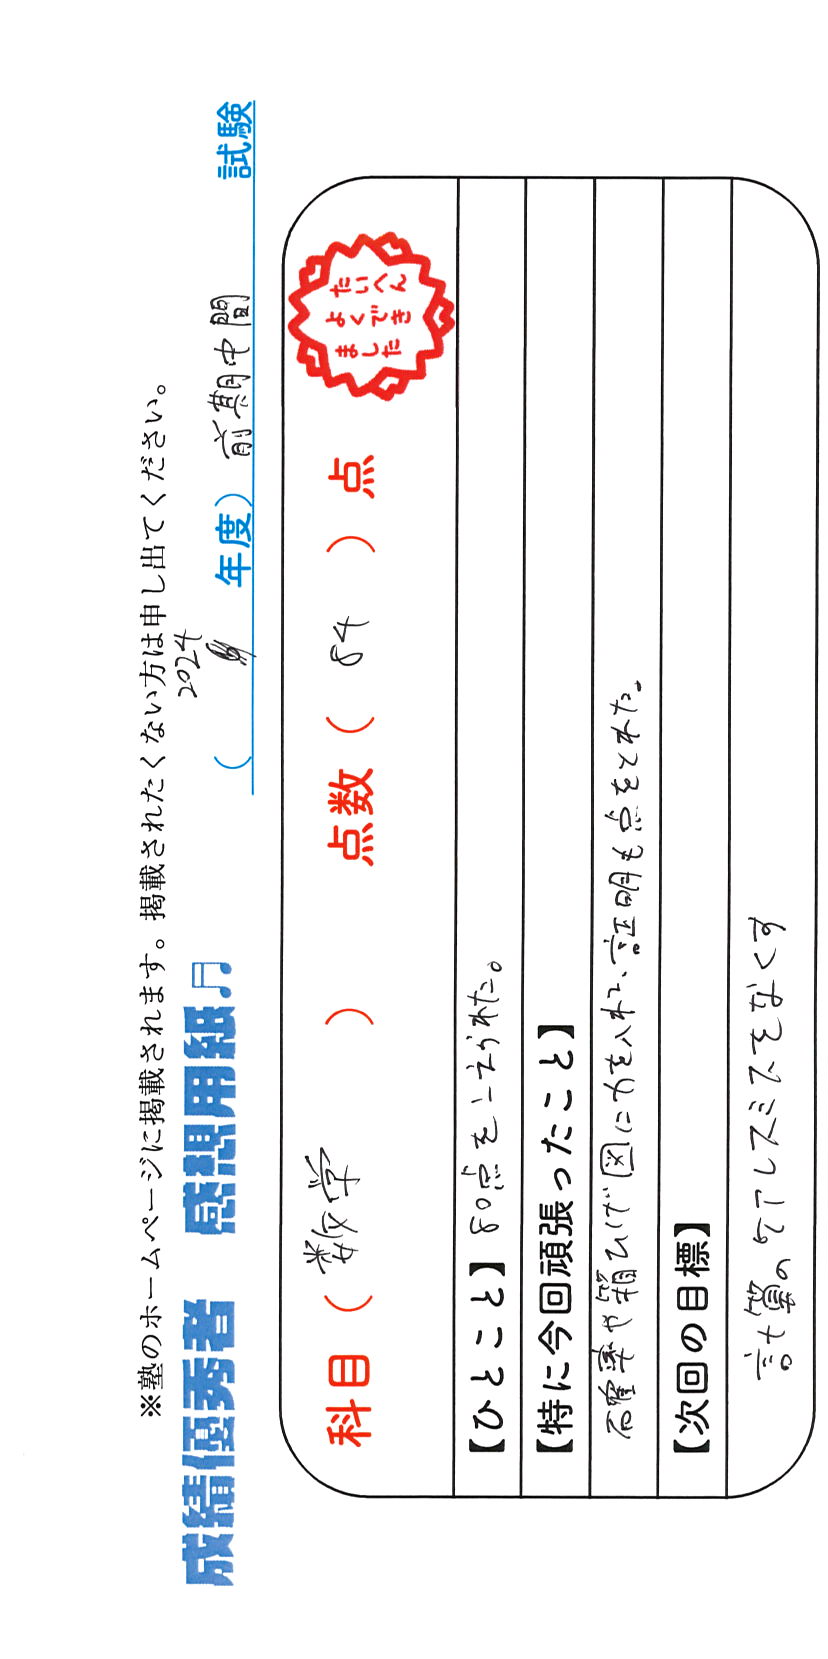 ※塾のホームページに掲載されます。掲載されたくない方は申し出てください。
成績優秀者 感想用紙♫
( 2024 年度) 前期中間 試験
科目( 数学 ) 点数( 84 )点
たいへん
よくでき
ました
【ひとこと】80点をこえられた。
【特に今回頑張ったこと】
確率や箱ひげ図に力を入れて、証明も点をとれた。
【次回の目標】
計算のケアレスミスをなくす